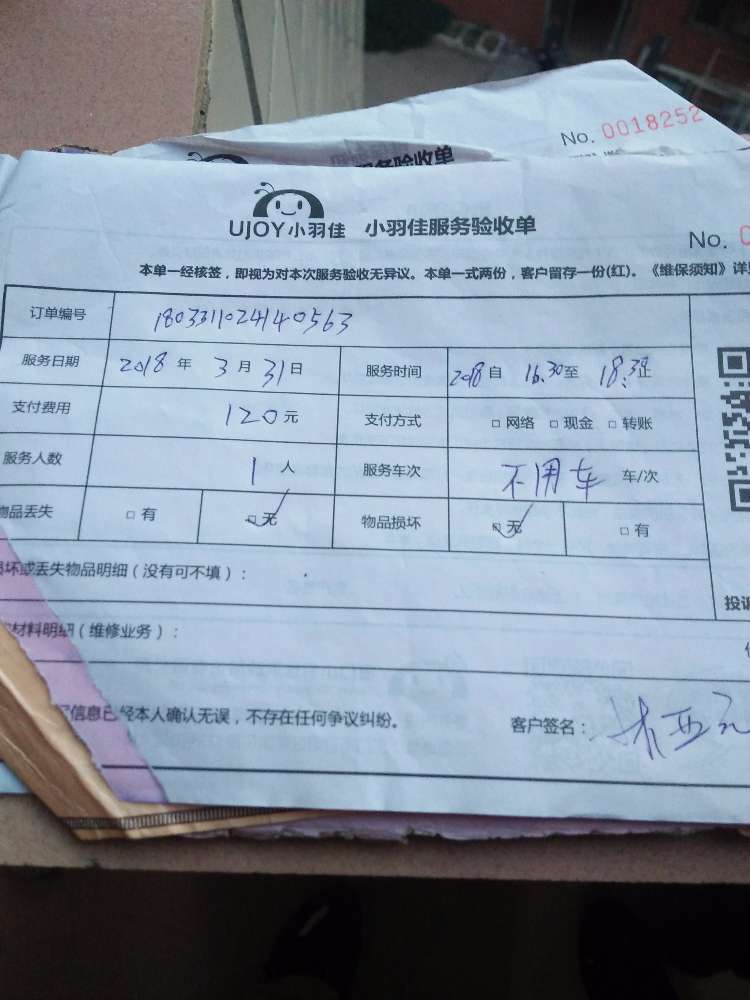 No. 0018252
服务验收单
UJOY小羽佳 小羽佳服务验收单
No. 0
本单一经核签，即视为对本次服务验收无异议。本单一式两份，客户留存一份(红)。《维保须知》详
订单编号 180331102414 0563
服务日期 2018 年 3 月 31 日 服务时间 2018 自 16:30 至 18:30 止
支付费用 120 元 支付方式 □ 网络 □ 现金 □ 转账
服务人数 1 人 服务车次 不用车 车/次
物品丢失 □ 有 □ 无 物品损坏 □ 无 □ 有
坏或丢失物品明细（没有可不填）：
投诉
材料明细（维修业务）：
信息已经本人确认无误，不存在任何争议纠纷。 客户签名：